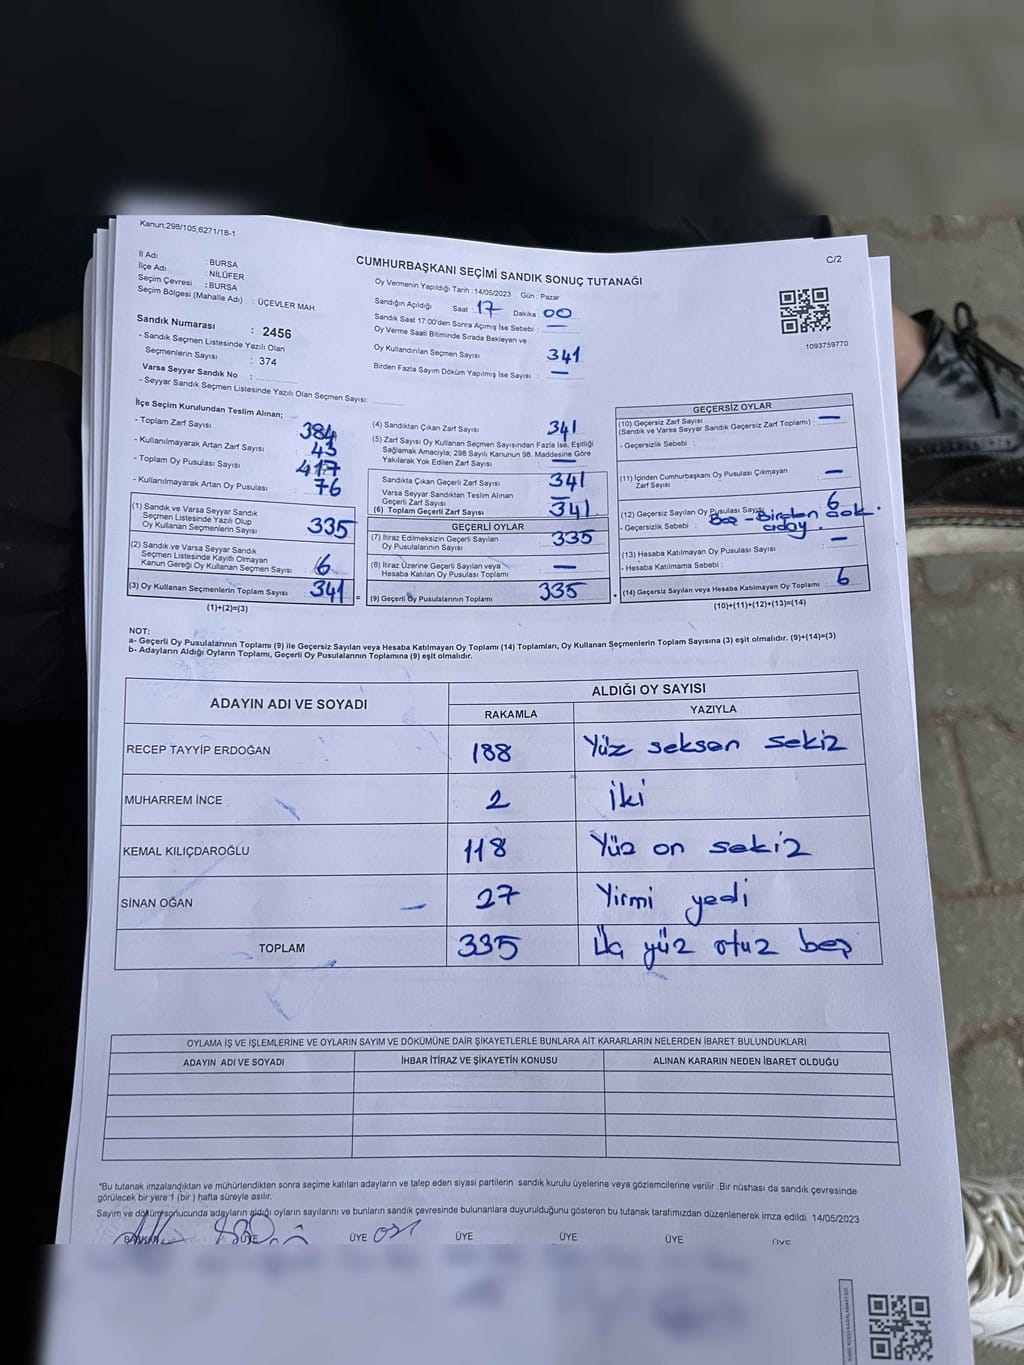 Kanun:298/105,6271/18-1
C/2
CUMHURBAŞKANI SEÇİMİ SANDIK SONUÇ TUTANAĞI
İl Adı : BURSA
İlçe Adı : NİLÜFER
Seçim Çevresi : BURSA
Seçim Bölgesi (Mahalle Adı) : ÜÇEVLER MAH
Sandık Numarası : 2456
- Sandık Seçmen Listesinde Yazılı Olan
Seçmenlerin Sayısı : 374
Varsa Seyyar Sandık No :
- Seyyar Sandık Seçmen Listesinde Yazılı Olan Seçmen Sayısı:
Oy Vermenin Yapıldığı Tarih : 14/05/2023 Gün : Pazar
Sandığın Açıldığı Saat : 17 Dakika : 00
Sandık Saat 17.00'den Sonra Açımış İse Sebebi : —
Oy Verme Saati Bitiminde Sırada Bekleyen ve
Oy Kullandırılan Seçmen Sayısı : 341
Birden Fazla Sayım Döküm Yapılmış İse Sayısı : —
1093759770
İlçe Seçim Kurulundan Teslim Alınan;
- Toplam Zarf Sayısı : 384
- Kullanılmayarak Artan Zarf Sayısı : 43
- Toplam Oy Pusulası Sayısı : 417
- Kullanılmayarak Artan Oy Pusulası : 76
(1) Sandık ve Varsa Seyyar Sandık
Seçmen Listesinde Yazılı Olup
Oy Kullanan Seçmenlerin Sayısı : 335
(2) Sandık ve Varsa Seyyar Sandık
Seçmen Listesinde Kayıtlı Olmayan
Kanun Gereği Oy Kullanan Seçmen Sayısı : 6
(3) Oy Kullanan Seçmenlerin Toplam Sayısı : 341
(1)+(2)=(3)
(4) Sandıktan Çıkan Zarf Sayısı : 341
(5) Zarf Sayısı Oy Kullanan Seçmen Sayısından Fazla İse, Eşitliği
Sağlamak Amacıyla; 298 Sayılı Kanunun 98. Maddesine Göre
Yakılarak Yok Edilen Zarf Sayısı : —
Sandıkta Çıkan Geçerli Zarf Sayısı : 341
Varsa Seyyar Sandıktan Teslim Alınan
Geçerli Zarf Sayısı : —
(6) Toplam Geçerli Zarf Sayısı : 341
GEÇERLİ OYLAR
(7) İtiraz Edilmeksizin Geçerli Sayılan
Oy Pusulalarının Sayısı : 335
(8) İtiraz Üzerine Geçerli Sayılan veya
Hesaba Katılan Oy Pusulası Toplamı : —
= (9) Geçerli Oy Pusulalarının Toplamı : 335
GEÇERSİZ OYLAR
(10) Geçersiz Zarf Sayısı
(Sandık ve Varsa Seyyar Sandık Geçersiz Zarf Toplamı) : —
- Geçersizlik Sebebi :
(11) İçinden Cumhurbaşkanı Oy Pusulası Çıkmayan
Zarf Sayısı : —
(12) Geçersiz Sayılan Oy Pusulası Sayısı : 6
- Geçersizlik Sebebi : Boş - Birden çok
aday.
(13) Hesaba Katılmayan Oy Pusulası Sayısı : —
- Hesaba Katılmama Sebebi :
(14) Geçersiz Sayılan veya Hesaba Katılmayan Oy Toplamı : 6
(10)+(11)+(12)+(13)=(14)
NOT:
a- Geçerli Oy Pusulalarının Toplamı (9) ile Geçersiz Sayılan veya Hesaba Katılmayan Oy Toplamı (14) Toplamları, Oy Kullanan Seçmenlerin Toplam Sayısına (3) eşit olmalıdır. (9)+(14)=(3)
b- Adayların Aldığı Oyların Toplamı, Geçerli Oy Pusulalarının Toplamına (9) eşit olmalıdır.
ADAYIN ADI VE SOYADI
ALDIĞI OY SAYISI
RAKAMLA YAZIYLA
RECEP TAYYİP ERDOĞAN 188 Yüz seksen sekiz
MUHARREM İNCE 2 İki
KEMAL KILIÇDAROĞLU 118 Yüz on sekiz
SİNAN OĞAN 27 Yirmi yedi
TOPLAM 335 Üç yüz otuz beş
OYLAMA İŞ VE İŞLEMLERİNE VE OYLARIN SAYIM VE DÖKÜMÜNE DAİR ŞİKAYETLERLE BUNLARA AİT KARARLARIN NELERDEN İBARET BULUNDUKLARI
ADAYIN ADI VE SOYADI İHBAR İTİRAZ VE ŞİKAYETİN KONUSU ALINAN KARARIN NEDEN İBARET OLDUĞU
*Bu tutanak imzalandıktan ve mühürlendikten sonra seçime katılan adayların ve talep eden siyasi partilerin sandık kurulu üyelerine veya gözlemcilerine verilir. Bir nüshası da sandık çevresinde
görülecek bir yere 1 (bir) hafta süreyle asılır.
Sayım ve döküm sonucunda adayların aldığı oyların sayılarını ve bunların sandık çevresinde bulunanlara duyurulduğunu gösteren bu tutanak tarafımızdan düzenlenerek imza edildi. 14/05/2023
BAŞKAN ÜYE ÜYE ÜYE ÜYE ÜYE ÜYE